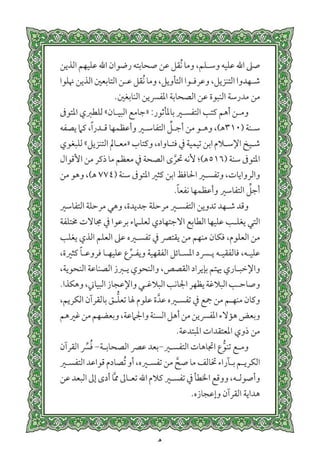 صلى الله عليه وسلم، وما نُقل عن صحابته رضوان الله عليهم الذين
شهدوا التنزيل، وعرفوا التأويل، وما نُقل عن التابعين الذين نهلوا
من مدرسة النبوة عن الصحابة المفسرين النابغين.
ومن أهم كتب التفسير بالمأثور: «جامع البيان» للطبري المتوفى
سنة (٣١٠هـ)، وهو من أجلّ التفاسير وأعظمها قدراً، كما يصفه
شيخ الإسلام ابن تيمية في فتاواه، وكتاب «معالم التنزيل» للبغوي
المتوفى سنة (٥١٦هـ)؛ لأنه تحرَّى الصحة في معظم ما ذكر من الأقوال
والروايات، وتفسير الحافظ ابن كثير المتوفى سنة (٧٧٤هـ)، وهو من
أجلّ التفاسير وأعظمها نفعاً.
وقد شهد تدوين التفسير مرحلة جديدة، وهي مرحلة التفاسير
التي يغلب عليها الطابع الاجتهادي لعلماء برعوا في مجالات مختلفة
من العلوم، فكان منهم من يقتصر في تفسيره على العلم الذي يغلب
عليه، فالفقيه يسرد المسائل الفقهية ويفرِّع عليها فروعاً كثيرة،
والإخباري يهتم بإيراد القصص، والنحوي يبرز الصناعة النحوية،
وصاحب البلاغة يظهر الجانب البلاغي والإعجاز البياني، وهكذا.
وكان منهم من جمع في تفسيره عدَّة علوم لها تعلُّق بالقرآن الكريم،
وبعض هؤلاء المفسرين من أهل السنة والجماعة، وبعضهم من غيرهم
من ذوي المعتقدات المبتدعة.
ومع تنوُّع اتجاهات التفسير -بعد عصر الصحابة- فُسِّر القرآن
الكريم بآراء تخالف ما صحَّ من تفسيره، أو تُصادم قواعد التفسير
وأصوله، ووقع الخطأ في تفسير كلام الله تعالى ممَّا أدى إلى البعد عن
هداية القرآن وإعجازه.